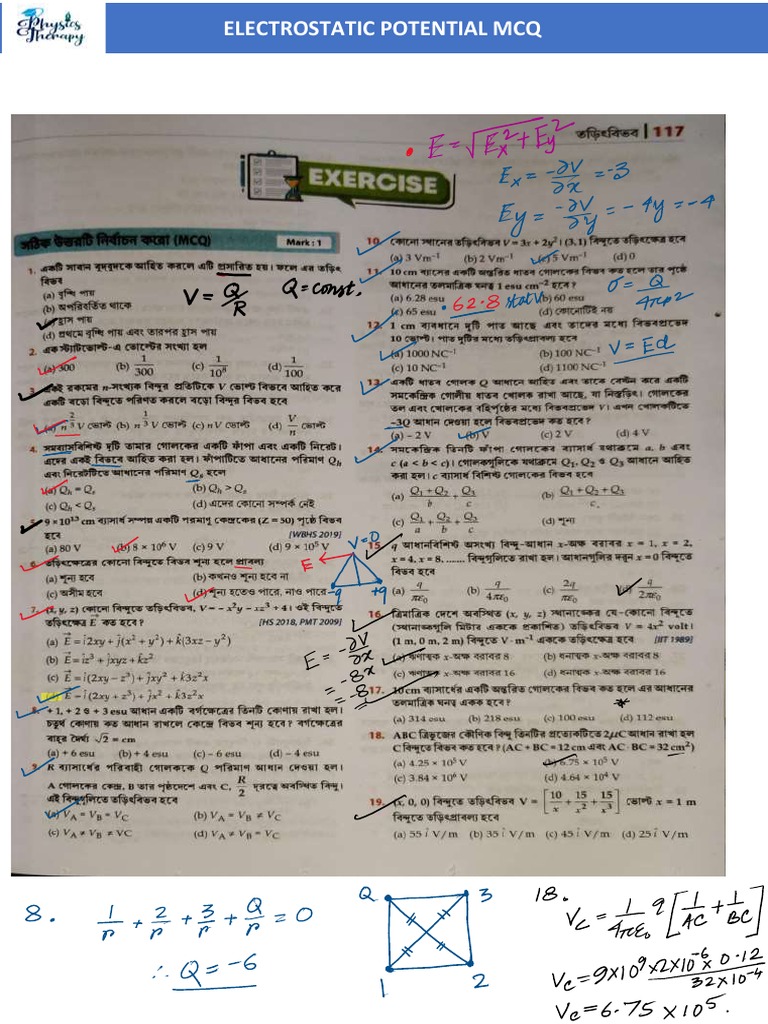 Physics Therapy
ELECTROSTATIC POTENTIAL MCQ
তড়িৎবিভব | 117
E = √(Ex² + Ey²)
Ex = -∂V/∂x = -3
Ey = -∂V/∂y = -4y = -4
EXERCISE
সঠিক উত্তরটি নির্বাচন করো (MCQ)
Mark : 1
1. একটি সাবান বুদবুদকে আহিত করলে এটি প্রসারিত হয়। ফলে এর তড়িৎ
বিভব
(a) বৃদ্ধি পায়
(b) অপরিবর্তিত থাকে
(c) হ্রাস পায়
(d) প্রথমে বৃদ্ধি পায় এবং তারপর হ্রাস পায়
V = Q/R
Q = const.
2. এক স্ট্যাটভোল্ট-এ ভোল্টের সংখ্যা হল
(a) 300 (b) 1/300 (c) 1/10⁸ (d) 1/100
3. একই রকমের n-সংখ্যক বিন্দুর প্রতিটিকে V ভোল্ট বিভবে আহিত করে
একটি বড়ো বিন্দুতে পরিণত করলে বড়ো বিন্দুর বিভব হবে
(a) n^(2/3) V ভোল্ট (b) n^(1/3) V ভোল্ট (c) nV ভোল্ট (d) V/n ভোল্ট
4. সমব্যাসবিশিষ্ট দুটি তামার গোলকের একটি ফাঁপা এবং একটি নিরেট।
এদের একই বিভবে আহিত করা হল। ফাঁপাটিতে আধানের পরিমাণ Qh
এবং নিরেটটিতে আধানের পরিমাণ Qs হলে
(a) Qh = Qs (b) Qh > Qs
(c) Qh < Qs (d) এদের কোনো সম্পর্ক নেই
5. 9 × 10¹³ cm ব্যাসার্ধ সম্পন্ন একটি পরমাণু কেন্দ্রকের (Z = 50) পৃষ্ঠে বিভব
হবে [WBHS 2019]
(a) 80 V (b) 8 × 10⁶ V (c) 9 V (d) 9 × 10⁵ V
6. তড়িৎক্ষেত্রের কোনো বিন্দুতে বিভব শূন্য হলে প্রাবল্য
(a) শূন্য হবে (b) কখনও শূন্য হবে না
(c) অসীম হবে (d) শূন্য হতেও পারে, নাও পারে
V=0
E
-q +q
7. (x, y, z) কোনো বিন্দুতে তড়িৎবিভব, V = – x²y – xz³ + 4। ওই বিন্দুতে
তড়িৎক্ষেত্র E⃗ কত হবে? [HS 2018, PMT 2009]
(a) E⃗ = î2xy + ĵ(x² + y²) + k̂(3xz – y²)
(b) E⃗ = îz³ + ĵxyz + k̂z²
(c) E⃗ = î(2xy – z³) + ĵxy² + k̂3z²x
E⃗ = î(2xy + z³) + ĵx² + k̂3z²x
8. + 1, + 2 ও + 3 esu আধান একটি বর্গক্ষেত্রের তিনটি কোণায় রাখা হল।
চতুর্থ কোণায় কত আধান রাখলে কেন্দ্রে বিভব শূন্য হবে? বর্গক্ষেত্রের
বাহুর দৈর্ঘ্য √2 = cm
(a) + 6 esu (b) + 4 esu (c) – 6 esu (d) – 4 esu
9. R ব্যাসার্ধের পরিবাহী গোলককে Q পরিমাণ আধান দেওয়া হল।
A গোলকের কেন্দ্র, B তার পৃষ্ঠদেশে এবং C, R/2 দূরত্বে অবস্থিত বিন্দু।
এই বিন্দুগুলিতে তড়িৎবিভব হবে
(a) VA = VB = VC (b) VA = VB ≠ VC
(c) VA ≠ VB ≠ VC (d) VA ≠ VB = VC
10. কোনো স্থানের তড়িৎবিভব V = 3x + 2y²। (3, 1) বিন্দুতে তড়িৎক্ষেত্র হবে
(a) 3 Vm⁻¹ (b) 2 Vm⁻¹ (c) 5 Vm⁻¹ (d) 0
11. 10 cm ব্যাসের একটি অন্তরিত ধাতব গোলকের বিভব কত হলে তার পৃষ্ঠে
আধানের তলমাত্রিক ঘনত্ব 1 esu cm⁻² হবে?
(a) 6.28 esu (b) 60 esu
62.8 statV
(c) 65 esu (d) কোনোটিই নয়
σ = Q/4πr²
12. 1 cm ব্যবধানে দুটি পাত আছে এবং তাদের মধ্যে বিভবপ্রভেদ
10 ভোল্ট। পাত দুটির মধ্যে তড়িৎপ্রাবল্য হবে
(a) 1000 NC⁻¹ (b) 100 NC⁻¹
(c) 10 NC⁻¹ (d) 1100 NC⁻¹
V = Ed
13. একটি ধাতব গোলক Q আধানে আহিত এবং তাকে বেষ্টন করে একটি
সমকেন্দ্রিক গোলীয় ধাতব খোলক রাখা আছে, যা নিস্তড়িৎ। গোলকের
তল এবং খোলকের বহিঃপৃষ্ঠের মধ্যে বিভবপ্রভেদ V। এখন খোলকটিতে
–3Q আধান দেওয়া হলে বিভবপ্রভেদ কত হবে?
(a) – 2 V (b) V (c) 2 V (d) 4 V
14. সমকেন্দ্রিক তিনটি ফাঁপা গোলকের ব্যাসার্ধ যথাক্রমে a, b এবং
c (a < b < c)। গোলকগুলিকে যথাক্রমে Q₁, Q₂ ও Q₃ আধানে আহিত
করা হল। c ব্যাসার্ধ বিশিষ্ট গোলকের বিভব
(a) (Q₁ + Q₂)/b + Q₃/c (b) (Q₁ + Q₂ + Q₃)/c
(c) Q₁/a + Q₂/b + Q₃/c (d) শূন্য
15. q আধানবিশিষ্ট অসংখ্য বিন্দু-আধান x-অক্ষ বরাবর x = 1, x = 2,
x = 4, x = 8, ....... বিন্দুগুলিতে রাখা হল। আধানগুলির দরুন x = 0 বিন্দুতে
বিভব হবে
(a) q/πε₀ (b) q/4πε₀ (c) 2q/πε₀ (d) q/2πε₀
16. ত্রিমাত্রিক দেশে অবস্থিত (x, y, z) স্থানাঙ্কের যে-কোনো বিন্দুতে
(স্থানাঙ্কগুলি মিটার এককে প্রকাশিত) তড়িৎবিভব V = 4x² volt।
(1 m, 0 m, 2 m) বিন্দুতে V · m⁻¹ এককে তড়িৎক্ষেত্র হবে [IIT 1989]
(a) ঋণাত্মক x-অক্ষ বরাবর 8 (b) ধনাত্মক x-অক্ষ বরাবর 8
(c) ঋণাত্মক x-অক্ষ বরাবর 16 (d) ধনাত্মক x-অক্ষ বরাবর 16
E = -∂V/∂x
= -8x
= -8
17. 10 cm ব্যাসার্ধের একটি অন্তরিত গোলকের বিভব কত হলে এর আধানের
তলমাত্রিক ঘনত্ব একক হবে?
(a) 314 esu (b) 218 esu (c) 100 esu (d) 112 esu
18. ABC ত্রিভুজের কৌণিক বিন্দু তিনটির প্রত্যেকটিতে 2μC আধান রাখা হল
C বিন্দুতে বিভব কত হবে? (AC + BC = 12 cm এবং AC · BC = 32 cm²)
(a) 4.25 × 10⁵ V (b) 6.75 × 10⁵ V
(c) 3.84 × 10⁶ V (d) 4.64 × 10⁴ V
19. (x, 0, 0) বিন্দুতে তড়িৎবিভব V = [10/x + 15/x² + 15/x³] ভোল্ট x = 1 m
বিন্দুতে তড়িৎপ্রাবল্য হবে
(a) 55 î V/m (b) 35 î V/m (c) 45 î V/m (d) 25 î V/m
8. 1/r + 2/r + 3/r + Q/r = 0
∴ Q = -6
Q 3
1 2
18.
Vc = 1/4πε₀ q [1/AC + 1/BC]
Vc = 9×10⁹ × 2×10⁻⁶ × 0.12 / 32×10⁻⁴
Vc = 6.75 × 10⁵.